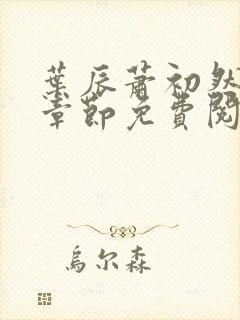 葉辰蕭初然
章節免費閱
烏尔森